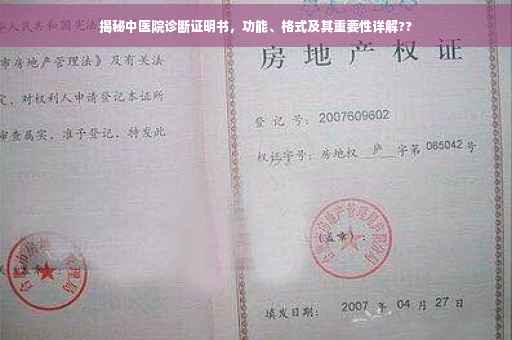 揭秘中医院诊断证明书，功能、格式及其重要性详解??
人民共和国宪法
市房地产管理法》及有关法
定，对权利人申请登记本证所
审查属实，准予登记，特发此
房地产权证
登记号：2007609602
权证字号：房地权 庐 字第 065042 号
(盖章)：
填发日期： 2007 年 04 月 27 日